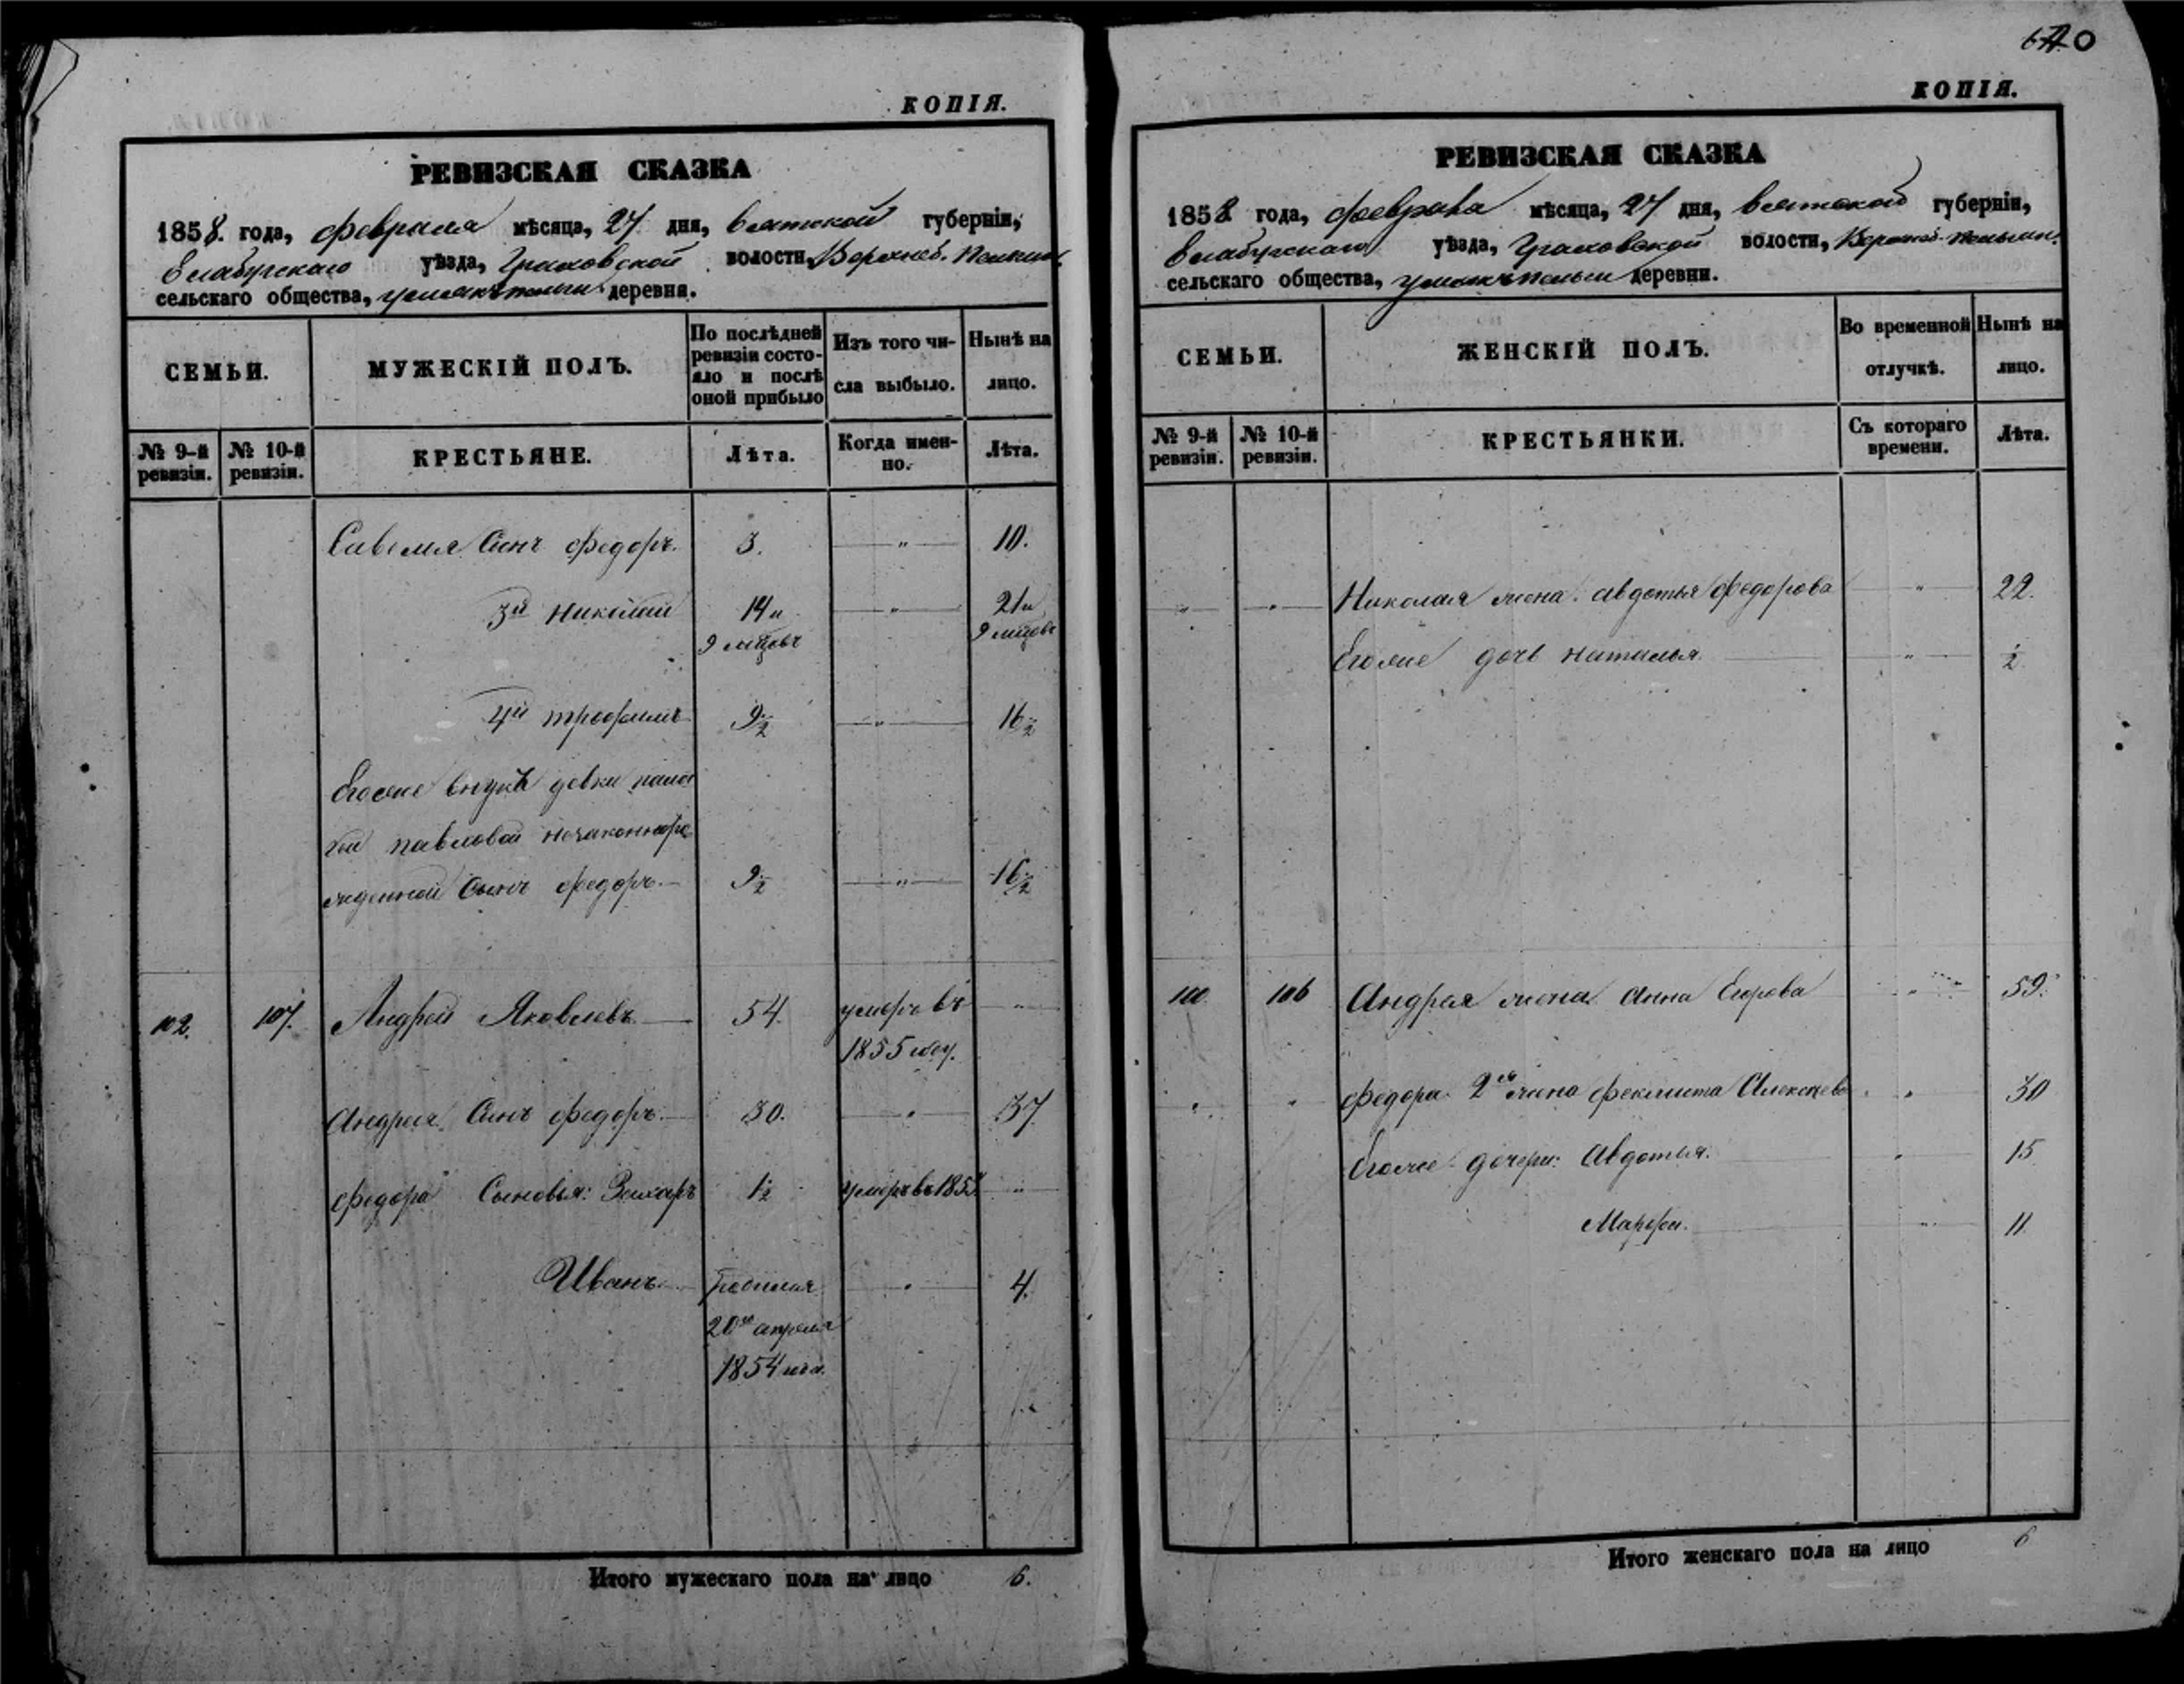 КОПІЯ.
РЕВИЗСКАЯ СКАЗКА
1858. года, февраля мѣсяца, 27 дня, Вятской губерніи,
Елабугскаго уѣзда, Граховской волости,
сельскаго общества, деревня.
СЕМЬИ.
МУЖЕСКІЙ ПОЛЪ.
По послѣдней ревизіи состояло и послѣ оной прибыло
Изъ того числа выбыло.
Нынѣ на лицо.
№ 9-й ревизіи.
№ 10-й ревизіи.
КРЕСТЬЯНЕ.
Лѣта.
Когда именно.
Лѣта.
Савелья Сынъ Федоръ. 3. " 10.
3й Николай 14 и " 21 и
9 мѣцовъ 9 мѣцовъ
4й трофимъ 9½ " 16½
Егоже внукъ девки
павловой незаконноро
жденной Сынъ федоръ. 9½ " 16½
102. 107. Андрей Яковлевъ 54. умеръ въ "
1855 году.
Андрея Сынъ федоръ. 30. " 37.
федора Сыновья: Захаръ 1½ умеръ въ "
Иванъ родился " 4.
20го апреля
1854 года.
Итого мужескаго пола на лицо 6.
КОПІЯ.
РЕВИЗСКАЯ СКАЗКА
1858 года, февраля мѣсяца, 27 дня, Вятской губерніи,
Елабугскаго уѣзда, Граховской волости,
сельскаго общества, деревни.
СЕМЬИ.
ЖЕНСКІЙ ПОЛЪ.
Во временной отлучкѣ.
Нынѣ на лицо.
№ 9-й ревизіи.
№ 10-й ревизіи.
КРЕСТЬЯНКИ.
Съ котораго времени.
Лѣта.
" " Николая жена авдотья федорова " 22.
Егоже дочь наталья " ½
100 106 Андрея жена анна Егорова " 59.
" " федора 2я жена феклиста Алексеева " 30
Егоже дочери: Авдотья. " 15
Марфа. " 11
Итого женскаго пола на лицо 6